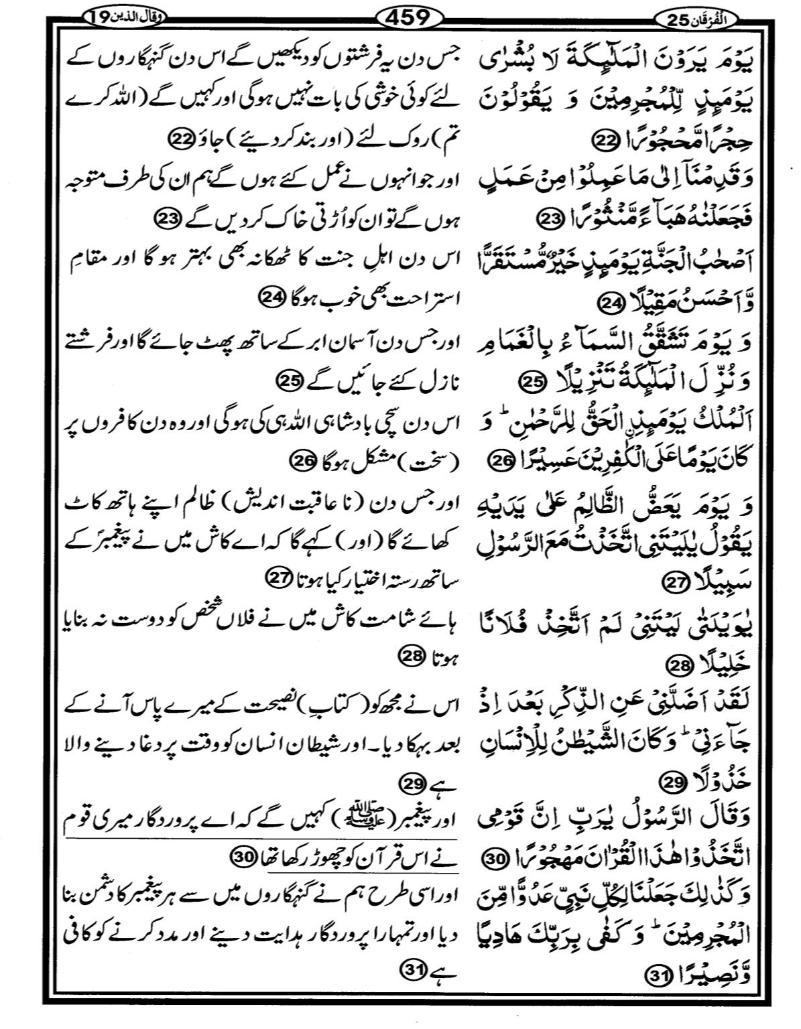 الفرقان 25
459
وقال الذین 19
یَوۡمَ یَرَوۡنَ الۡمَلٰٓئِکَۃَ لَا بُشۡرٰی
یَوۡمَئِذٍ لِّلۡمُجۡرِمِیۡنَ وَ یَقُوۡلُوۡنَ
حِجۡرًا مَّحۡجُوۡرًا 22
وَقَدِمۡنَاۤ اِلٰی مَا عَمِلُوۡا مِنۡ عَمَلٍ
فَجَعَلۡنٰہُ ہَبَآءً مَّنۡثُوۡرًا 23
اَصۡحٰبُ الۡجَنَّۃِ یَوۡمَئِذٍ خَیۡرٌ مُّسۡتَقَرًّا
وَّاَحۡسَنُ مَقِیۡلًا 24
وَ یَوۡمَ تَشَقَّقُ السَّمَآءُ بِالۡغَمَامِ
وَ نُزِّلَ الۡمَلٰٓئِکَۃُ تَنۡزِیۡلًا 25
اَلۡمُلۡکُ یَوۡمَئِذِۣ الۡحَقُّ لِلرَّحۡمٰنِ ؕ وَ
کَانَ یَوۡمًا عَلَی الۡکٰفِرِیۡنَ عَسِیۡرًا 26
وَ یَوۡمَ یَعَضُّ الظَّالِمُ عَلٰی یَدَیۡہِ
یَقُوۡلُ یٰلَیۡتَنِی اتَّخَذۡتُ مَعَ الرَّسُوۡلِ
سَبِیۡلًا 27
یٰوَیۡلَتٰی لَیۡتَنِیۡ لَمۡ اَتَّخِذۡ فُلَانًا
خَلِیۡلًا 28
لَقَدۡ اَضَلَّنِیۡ عَنِ الذِّکۡرِ بَعۡدَ اِذۡ
جَآءَنِیۡ ؕ وَکَانَ الشَّیۡطٰنُ لِلۡاِنۡسَانِ
خَذُوۡلًا 29
وَقَالَ الرَّسُوۡلُ یٰرَبِّ اِنَّ قَوۡمِی
اتَّخَذُوۡا ہٰذَا الۡقُرۡاٰنَ مَہۡجُوۡرًا 30
وَکَذٰلِکَ جَعَلۡنَا لِکُلِّ نَبِیٍّ عَدُوًّا مِّنَ
الۡمُجۡرِمِیۡنَ ؕ وَ کَفٰی بِرَبِّکَ ہَادِیًا
وَّنَصِیۡرًا 31
جس دن یہ فرشتوں کو دیکھیں گے اس دن گنہگاروں کے
لئے کوئی خوشی کی بات نہیں ہوگی اور کہیں گے (اللہ کرے
تم) روک لئے (اور بند کر دیئے) جاؤ 22
اور جو انہوں نے عمل کئے ہوں گے ہم ان کی طرف متوجہ
ہوں گے تو ان کو اُڑتی خاک کر دیں گے 23
اس دن اہلِ جنت کا ٹھکانہ بھی بہتر ہوگا اور مقامِ
استراحت بھی خوب ہوگا 24
اور جس دن آسمان ابر کے ساتھ پھٹ جائے گا اور فرشتے
نازل کئے جائیں گے 25
اس دن سچی بادشاہی اللہ ہی کی ہوگی اور وہ دن کافروں پر
(سخت) مشکل ہوگا 26
اور جس دن (نا عاقبت اندیش) ظالم اپنے ہاتھ کاٹ
کھائے گا (اور) کہے گا کہ اے کاش میں نے پیغمبرؐ کے
ساتھ رستہ اختیار کیا ہوتا 27
ہائے شامت کاش میں نے فلاں شخص کو دوست نہ بنایا
ہوتا 28
اس نے مجھ کو (کتابِ) نصیحت کے میرے پاس آنے کے
بعد بہکا دیا۔ اور شیطان انسان کو وقت پر دغا دینے والا
ہے 29
اور پیغمبر (ﷺ) کہیں گے کہ اے پروردگار میری قوم
نے اس قرآن کو چھوڑ رکھا تھا 30
اور اسی طرح ہم نے گنہگاروں میں سے ہر پیغمبر کا دشمن بنا
دیا اور تمہارا پروردگار ہدایت دینے اور مدد کرنے کو کافی
ہے 31